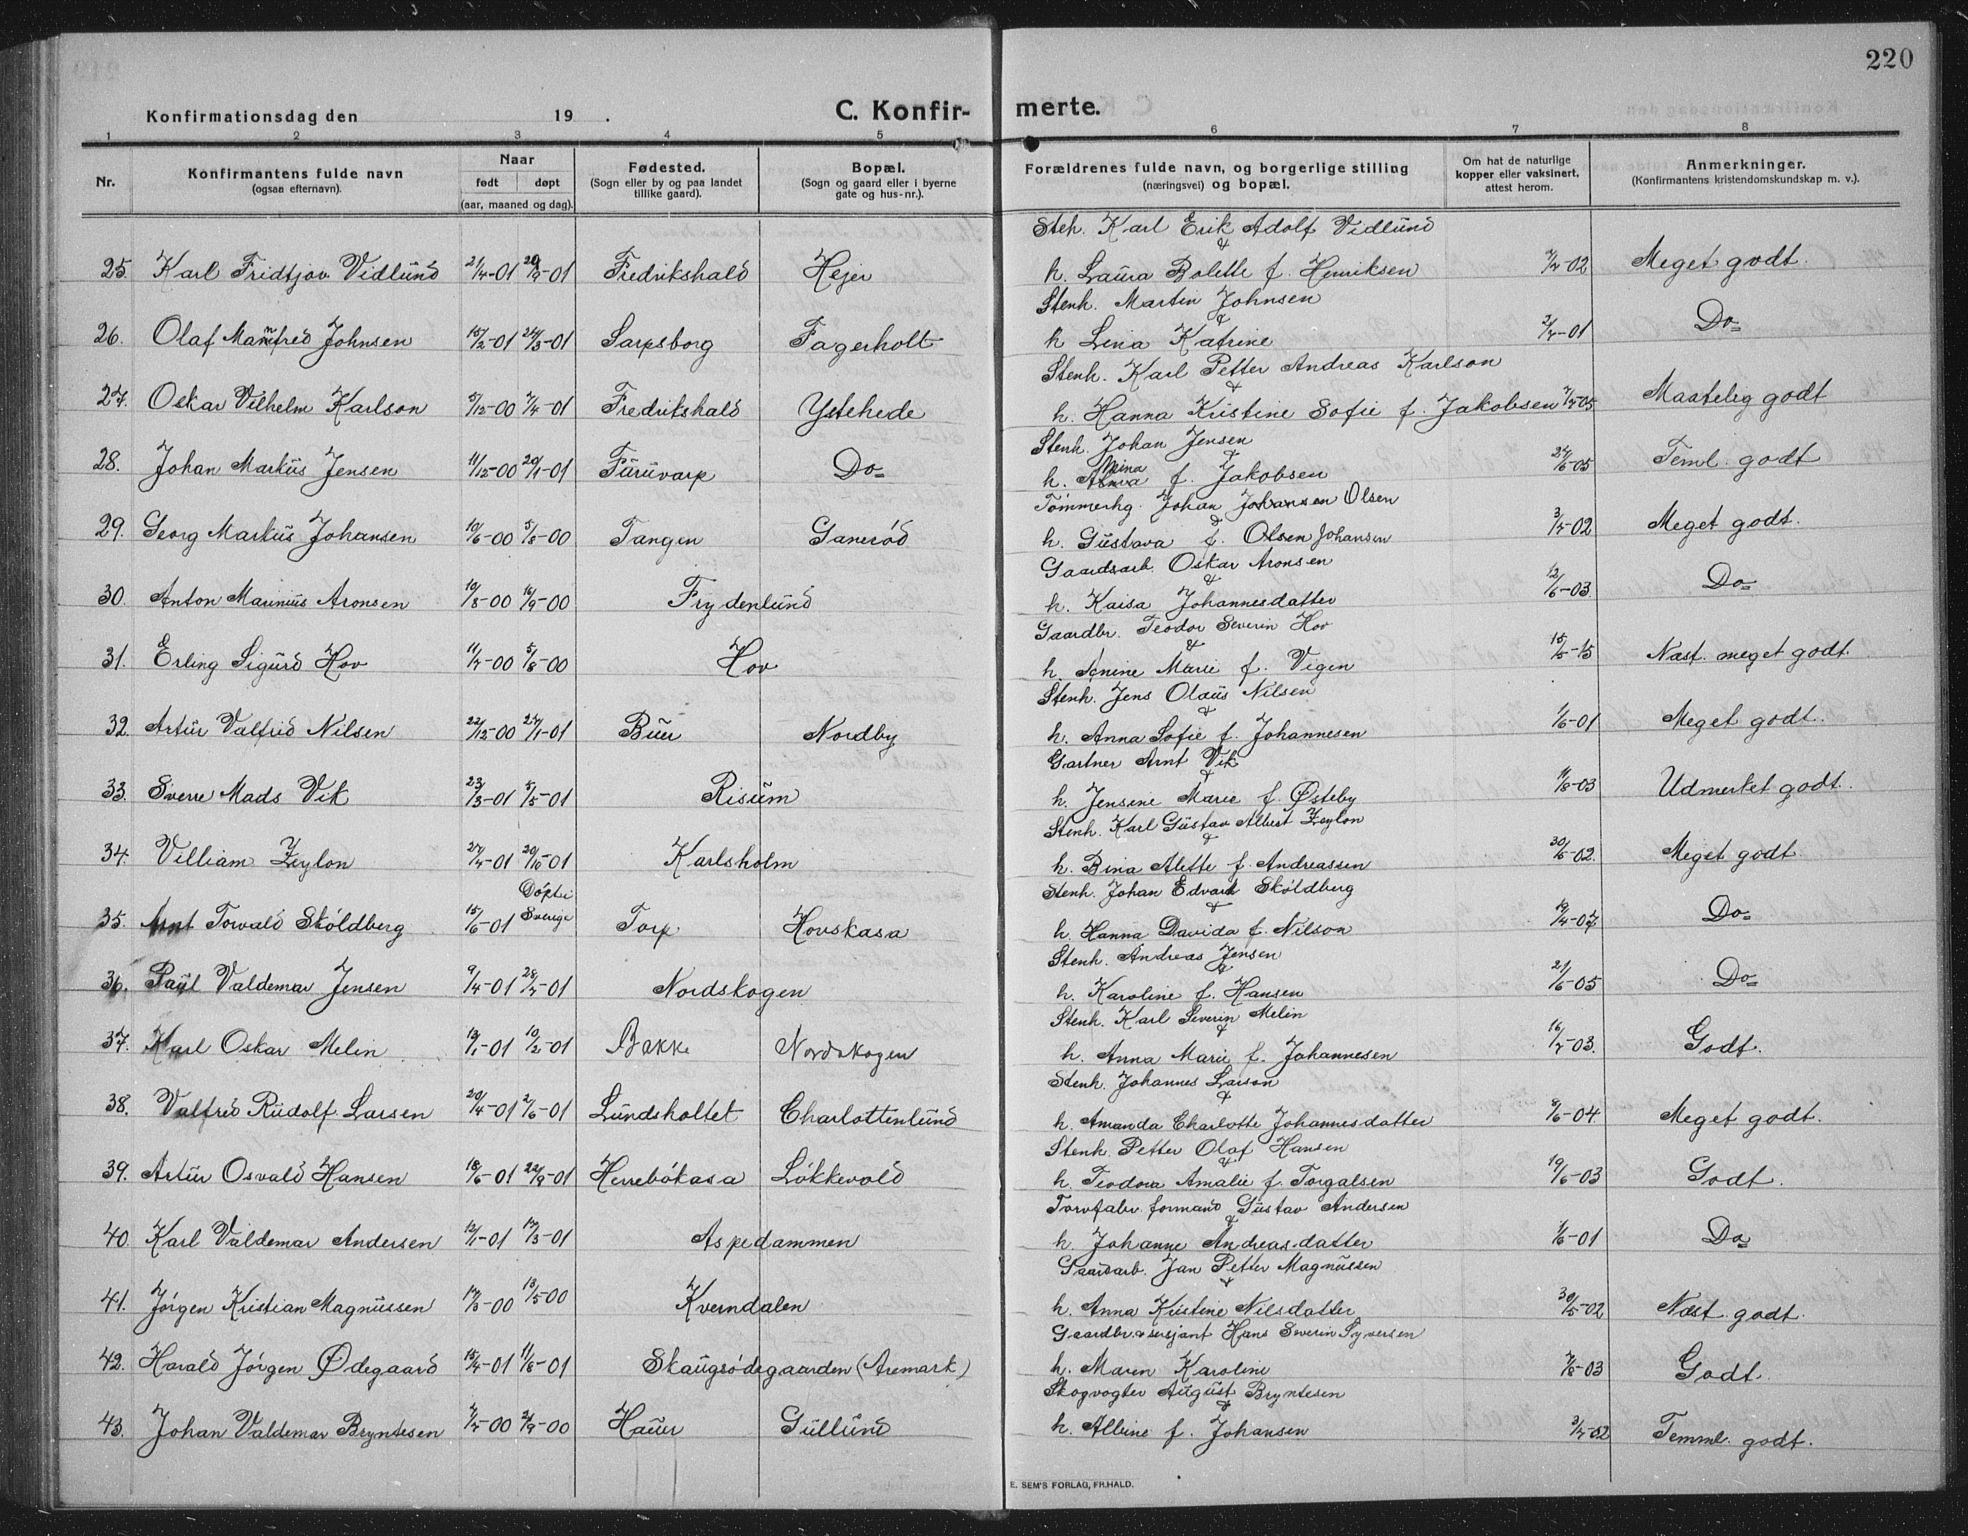 220
Konfirmationsdag den 19 . C. Konfir- merte.
1 2 3 4 5 6 7 8
Nr. Konfirmantens fulde navn (ogsaa efternavn). Naar født døpt (aar, maaned og dag). Fødested. (Sogn eller by og paa landet tillike gaard). Bopæl. (Sogn og gaard eller i byerne gate og hus-nr.). Forældrenes fulde navn, og borgerlige stilling (næringsvei) og bopæl. Om hat de naturlige kopper eller vaksinert, attest herom. Anmerkninger. (Konfirmantens kristendomskundskap m. v.).
Steh. Karl Erik Adolf Vidlund
&
25. Karl Fridtjov Vidlund 21/4-01 29/9-01 Fredrikshald Hejer h. Laura Bolette f. Henriksen -02 Meget godt.
Stenh. Martin Johnsen
&
26. Olaf Manfred Johnsen 15/2-01 24/3-01 Sarpsborg Fagerholt h Lina Katrine 2/7-01 Do
Stenh. Karl Petter Andreas Karlson
&
27. Oskar Vilhelm Karlson 5/12-00 7/4-01 Fredrikshald Ystehede h. Hanna Kristine Sofie f. Jakobsen 7/7-05 Maatelig godt
Stenh. Johan Jensen
&
28. Johan Markus Jensen 11/12-00 20/1-01 Furuvarp Do h. Mina f. Jakobsen 24/6-05 Teml. godt
Tømmerhg. Johan Johansen Olsen
&
29. Georg Markus Johansen 10/6-00 5/8-00 Tangen Ganerød h. Gustava f. Olsen Johansen 3/7-02 Meget godt.
Gaardsarb. Oskar Aronsen
&
30. Anton Marinius Aronsen 10/8-00 16/9-00 Frydenlund h. Kaisa Johannesdatter 12/6-03 Do
Gaardbr. Teodor Severin Hov
&
31. Erling Sigurd Hov 11/7-00 5/8-00 Hov h. Marie f. Vegen 15/5-15 Næst. meget godt.
Stenh. Jens Olaus Nilsen
&
32. Artur Valfrid Nilsen 22/12-00 27/1-01 Buer Nordby h. Anna Sofie f. Johannesen 1/6-01 Meget godt.
Gartner Arnt Vik
&
33. Sverre Mads Vik 23/3-01 5/5-01 Risum h. Jensine Marie f. Østeby 11/8-03 Udmerket godt.
Stenh. Karl Gustav Albert Zeylon
&
34. Villiam Zeylon 27/7-01 20/10-01 Karlsholm h. Bina Alette f. Andreassen 30/6-02. Meget godt
Stenh. Johan Edvard Sköldberg
&
35. Arnt Torvald Sköldberg 15/6-01 Döpt i Sverige Torp Hovskasa h. Hanna Davida f. Nilson 19/4-07 Do
Stenh. Andreas Jensen
&
36. Paul Valdemar Jensen 9/4-01 28/7-01 Nordskogen h. Karoline f. Hansen 21/6-05 Do
Stenh. Karl Severin Melin
&
37. Karl Oskar Melin 13/1-01 10/2-01 Bakke Nordskogen h. Anna Marie f. Johannesen 16/7-03. Godt.
Stenh. Johannes Larson
&
38. Valfred Rudolf Larsen 20/4-01 2/6-01 Lundsholtet Charlottenlund h. Amanda Charlotte Johannesdatter 8/6-04. Meget godt.
Stenh. Petter Olaf Hansen
&
39. Artur Osvald Hansen 18/6-01 22/9-01 Herrebökasa Lökkevold h. Teodora Amalie f. Torgalsen 19/6-03 Godt.
Torvfabr. formand Gustav Andersen
&
40. Karl Valdemar Andersen 12/1-01 17/3-01 Aspedammen h. Johanne Andreasdatter 1/6-01 Do
Gaardarb. Jan Petter Magnussen
&
41. Jörgen Kristian Magnussen 17/3-00 13/5-00 Kverndalen h. Anna Kristine Nilsdatter 30/5-02 Næst. godt.
Gaardbr. & sersjant Hans Severin Syversen
42. Harald Jörgen Ødegaard 15/4-01 11/6-01 Skaugsödegaarden (Aremark) h. Maren Karoline 7/8-03 Godt.
Skogvogter August Bryntesen
&
43. Johan Valdemar Bryntesen 2/7-00 2/9-00 Hauer Gullund h. Albine f. Johansen 3/7-02 Temml. godt.
E. SEM'S FORLAG, FR.HALD.